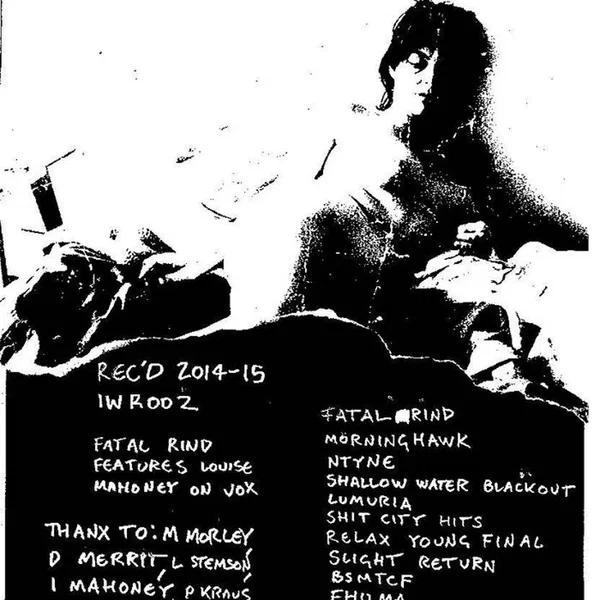 REC'D 2014-15
IWRODZ
FATAL RIND
FEATURES LOUISE
MAHONEY ON VOX
THANX TO: M MORLEY
D MERRIT, L STEMSON,
I MAHONEY, P KRAUS,
FATAL RIND
MÖRNINGHAWK
NTYNE
SHALLOW WATER BLACKOUT
LUMURIA
SHIT CITY HITS
RELAX YOUNG FINAL
SLIGHT RETURN
BSMTCF